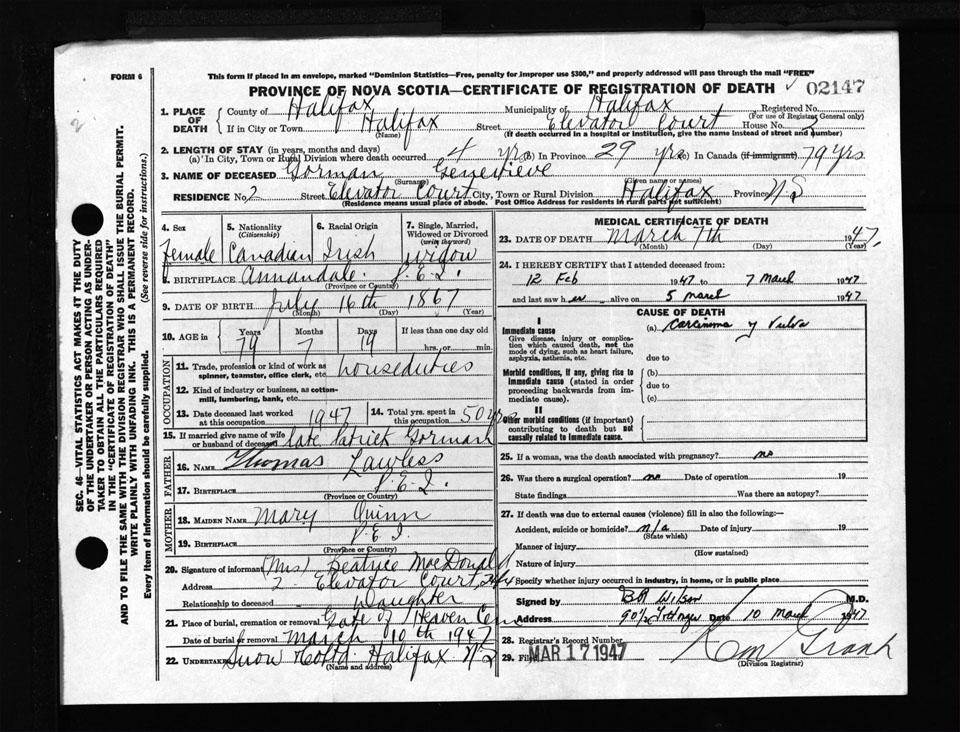 FORM 6
This form if placed in an envelope, marked "Dominion Statistics—Free, penalty for improper use $300," and properly addressed will pass through the mail "FREE"
PROVINCE OF NOVA SCOTIA—CERTIFICATE OF REGISTRATION OF DEATH 02147
SEC. 46—VITAL STATISTICS ACT MAKES IT THE DUTY
OF THE UNDERTAKER OR PERSON ACTING AS UNDER-
TAKER TO OBTAIN ALL THE PARTICULARS REQUIRED
IN THE "CERTIFICATE OF REGISTRATION OF DEATH"
AND TO FILE THE SAME WITH THE DIVISION REGISTRAR WHO SHALL ISSUE THE BURIAL PERMIT.
WRITE PLAINLY WITH UNFADING INK. THIS IS A PERMANENT RECORD.
Every item of information should be carefully supplied. (See reverse side for instructions.)
1. PLACE OF DEATH
County of Halifax Municipality of Halifax Registered No.
(For use of Registrar General only)
If in City or Town Halifax Street Elevator Court House No. 2
(Name) (If death occurred in a hospital or institution, give the name instead of street and number)
2. LENGTH OF STAY (in years, months and days)
(a) In City, Town or Rural Division where death occurred 4 yrs (b) In Province 29 yrs (c) In Canada (if immigrant) 79 yrs
3. NAME OF DECEASED Gorman Genevieve
(Surname) (Given name or names)
RESIDENCE No. 2 Street Elevator Court City, Town or Rural Division Halifax Province N.S
(Residence means usual place of abode. Post Office Address for residents in rural parts not sufficient)
4. Sex
Female
5. Nationality
(Citizenship)
Canadian
6. Racial Origin
Irish
7. Single, Married,
Widowed or Divorced
(write the word)
widow
8. BIRTHPLACE Annandale. P.E.I.
(Province or Country)
9. DATE OF BIRTH July 16th 1867
(Month) (Day) (Year)
10. AGE in
Years Months Days If less than one day
79 7 19 hrs., or min.
OCCUPATION
11. Trade, profession or kind of work as
spinner, teamster, office clerk, etc. houseduties
12. Kind of industry or business, as cotton-
mill, lumbering, bank, etc.
13. Date deceased last worked
at this occupation 1947
14. Total yrs. spent in
this occupation 50 yrs
15. If married give name of wife
or husband of deceased late Patrick Gorman
FATHER
16. NAME Thomas Lawless
17. BIRTHPLACE P.E.I.
(Province or Country)
MOTHER
18. MAIDEN NAME Mary Quinn
19. BIRTHPLACE P.E.I.
(Province or Country)
20. Signature of informant (Mrs) Beatrice MacDonald
Address 2 Elevator Court,
Relationship to deceased Daughter
21. Place of burial, cremation or removal Gate of Heaven Cem
Date of burial or removal March 10th 1947
22. Undertaker Snow Co Ltd. Halifax N.S
(Name and address)
MEDICAL CERTIFICATE OF DEATH
23. DATE OF DEATH March 7th 1947
(Month) (Day) (Year)
24. I HEREBY CERTIFY that I attended deceased from:
12 Feb 1947 to 7 March 1947
and last saw her alive on 5 March 1947
CAUSE OF DEATH
I
Immediate cause
Give disease, injury or complica-
tion which caused death, not the
mode of dying, such as heart failure,
asphyxia, asthenia, etc.
(a) Carcinoma of Vulva
due to
Morbid conditions, if any, giving rise to
immediate cause (stated in order
proceeding backwards from im-
mediate cause).
(b)
due to
(c)
II
Other morbid conditions (if important)
contributing to death but not
causally related to immediate cause.
25. If a woman, was the death associated with pregnancy? no
26. Was there a surgical operation? no Date of operation 19
State findings Was there an autopsy?
27. If death was due to external causes (violence) fill in also the following:—
Accident, suicide or homicide? n/a Date of injury 19
(State which)
Manner of injury
(How sustained)
Nature of injury
Specify whether injury occurred in industry, in home, or in public place
Signed by Wilson M.D.
Address Date 10 March 1947
28. Registrar's Record Number
29. Filed MAR 17 1947
(Division Registrar)